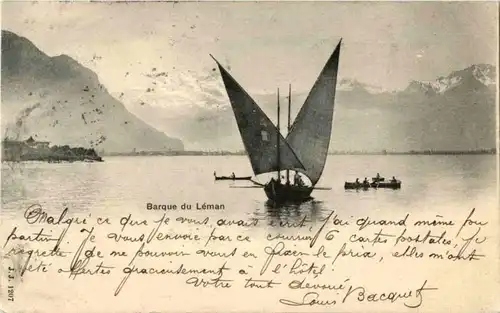 Barque du Léman
Malgré ce que je vous avais écrit, j'ai quand même pu
partir. Je vous envoie par ce courrier 6 cartes postales, je
regrette de ne pouvoir vous en fixer le prix, elles m'ont
été offertes gracieusement à l'hôtel.
Votre tout dévoué
Louis Bacquet
J. J. 1207